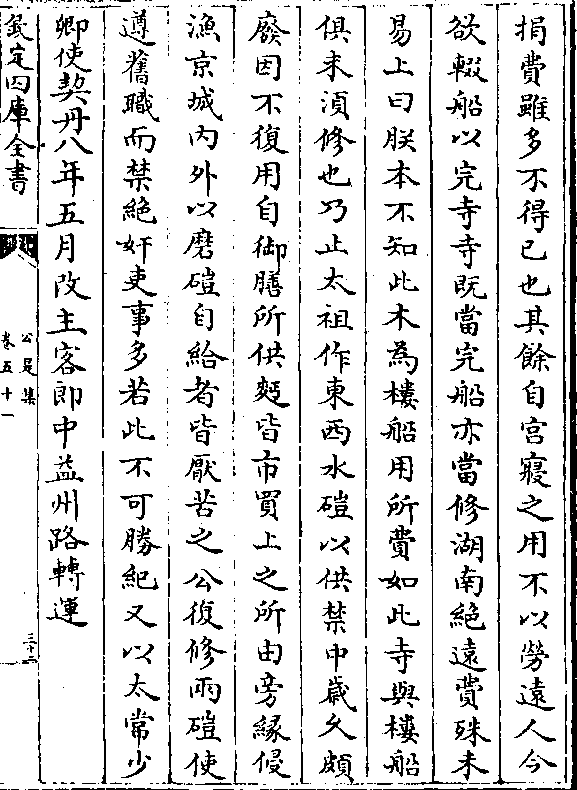 捐費雖多不得已也其餘自宫寢之用不以勞逺人今
欲輟船以完寺寺既當完船亦當修湖南絶逺費殊未
易上曰朕本不知此木為樓船用所費如此寺與樓船
俱未湏修也乃止太祖作東西水磑以供禁中嵗乆頗
廢因不復用自御膳所供麪皆市買上之所由旁緣侵
漁京城内外以磨磑自給者皆厭苦之公復修兩磑使
遵舊職而禁絶奸吏事多若此不可勝紀又以太常少
卿使契丹八年五月改主客郎中益州路轉運
欽定四庫全書
公是集
卷五十一
三十二